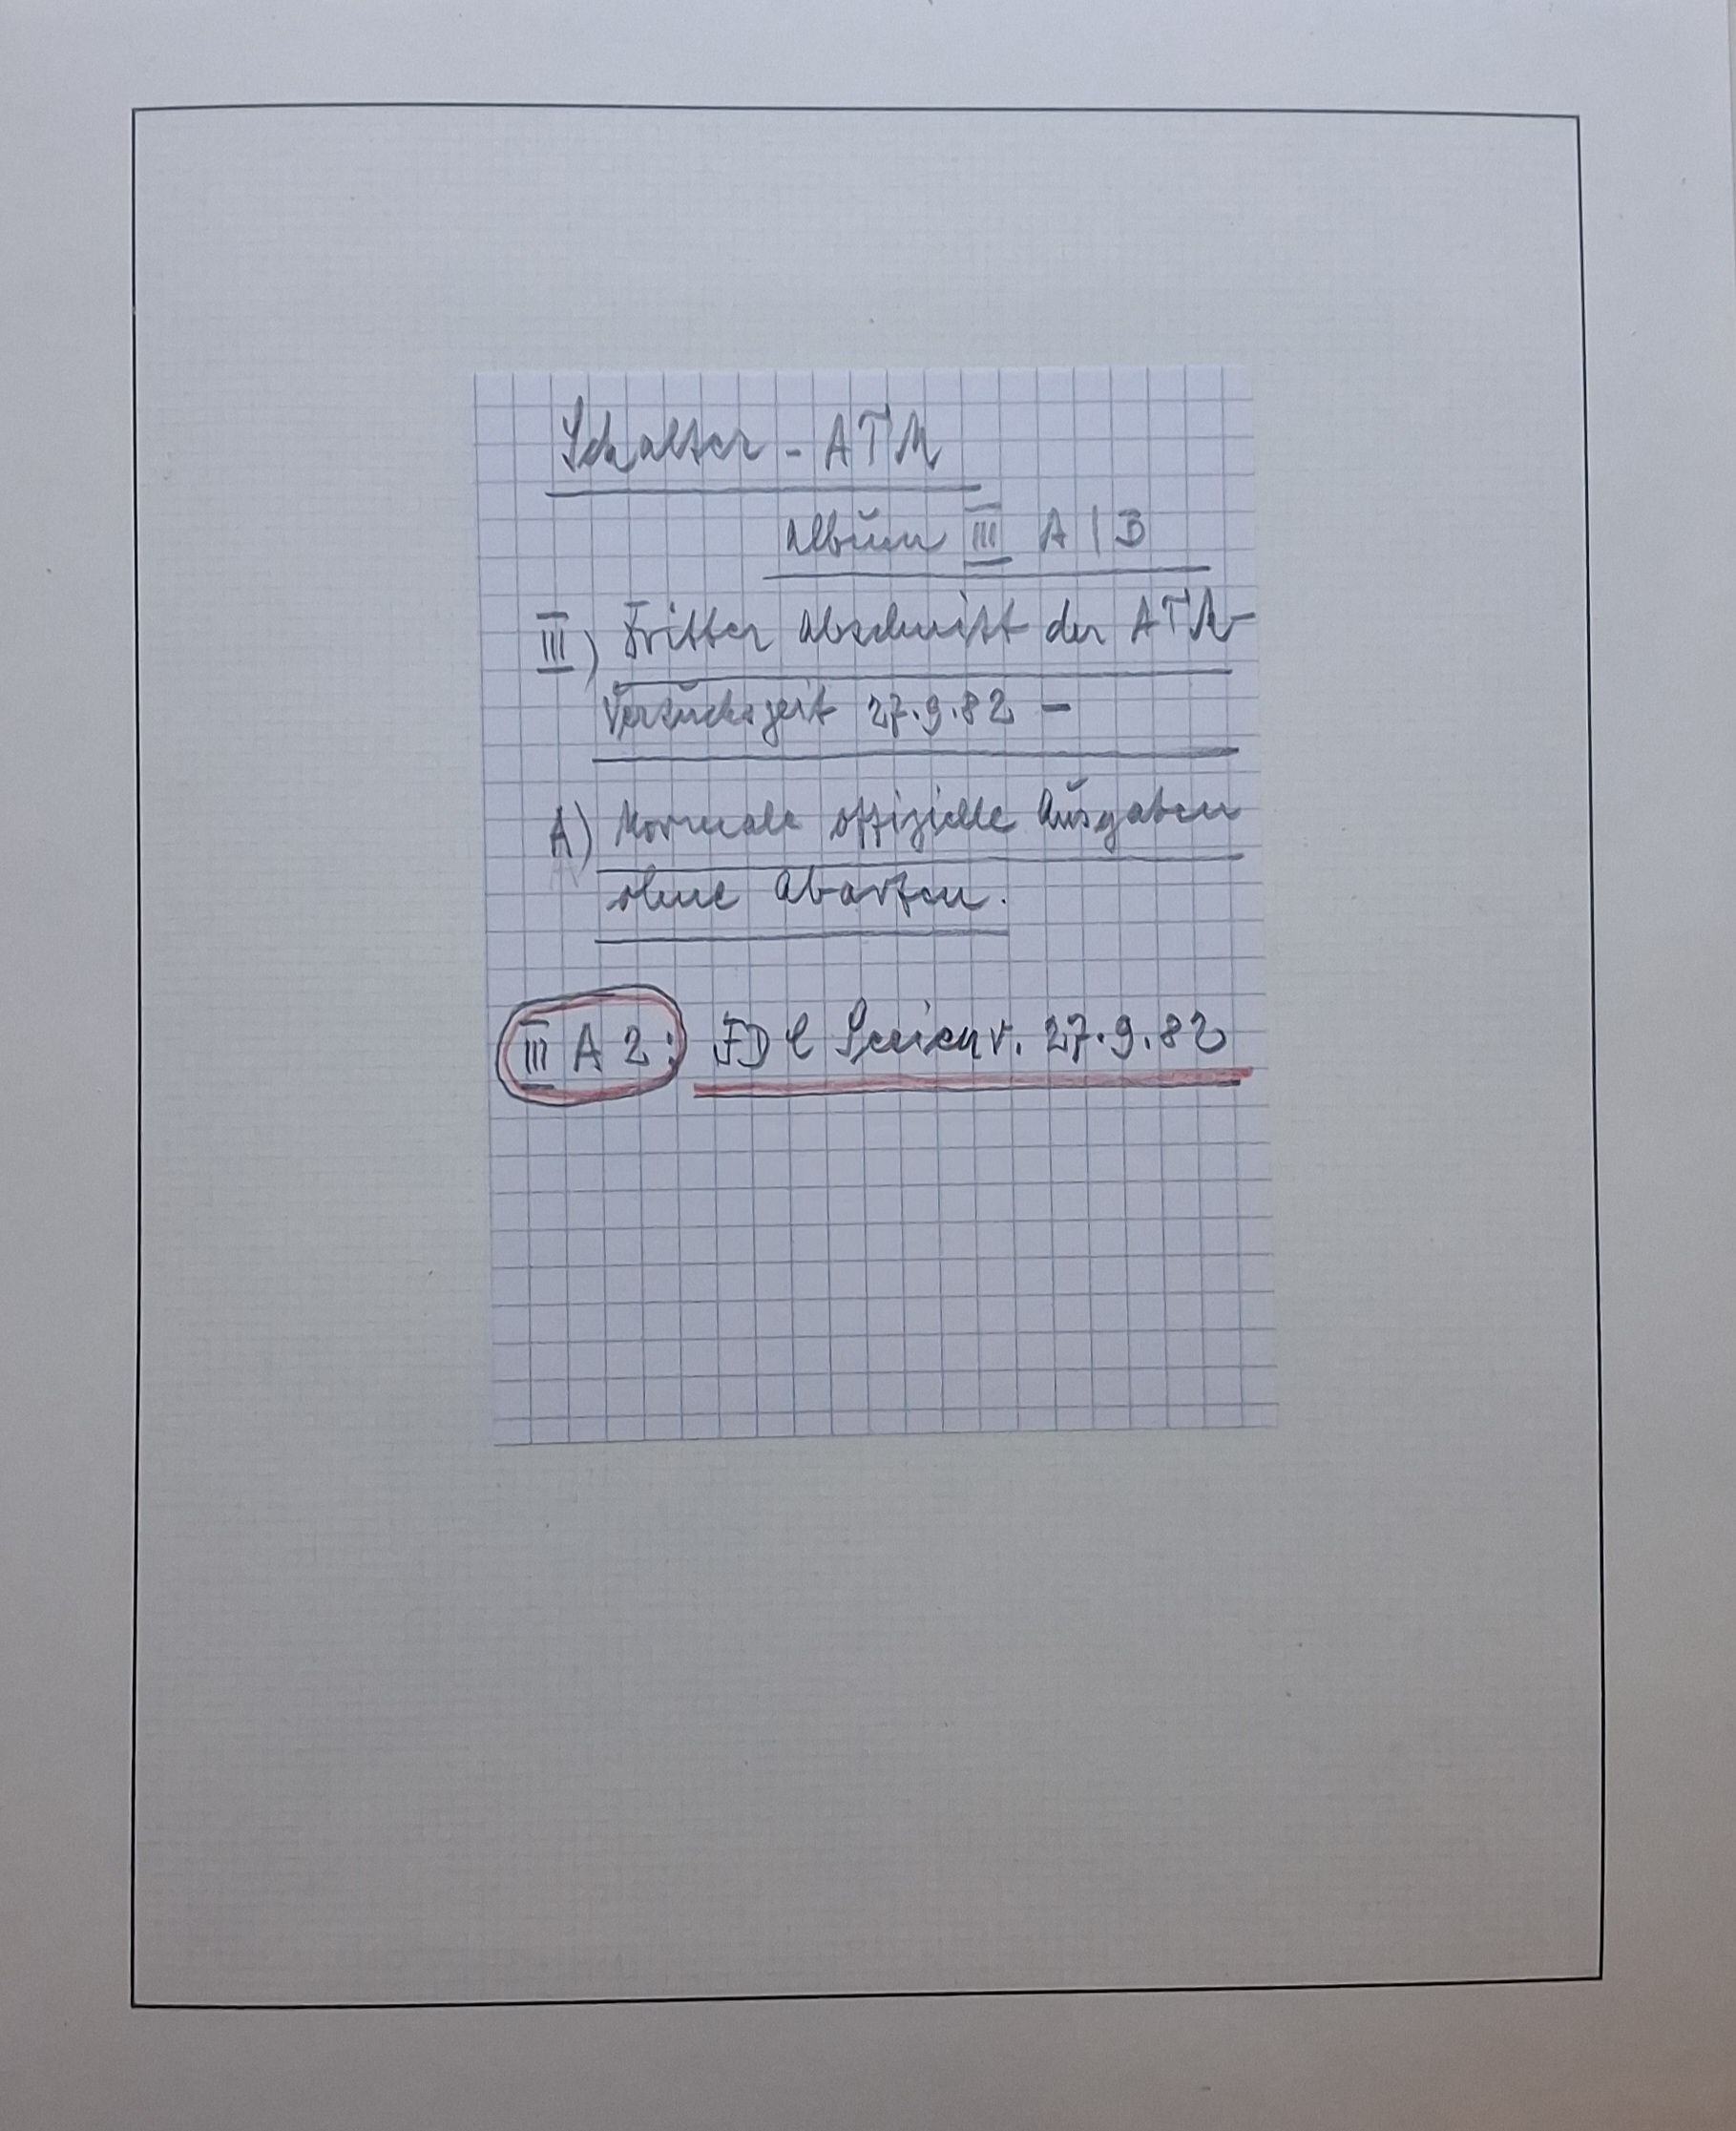 Schalter - ATM
Album III A | B
III) Dritter Abschnitt der ATM-
Versuchszeit 27.9.82 –
A) Normale offizielle Ausgaben
ohne Abarten.
III A 2: FDC Serien v. 27.9.82